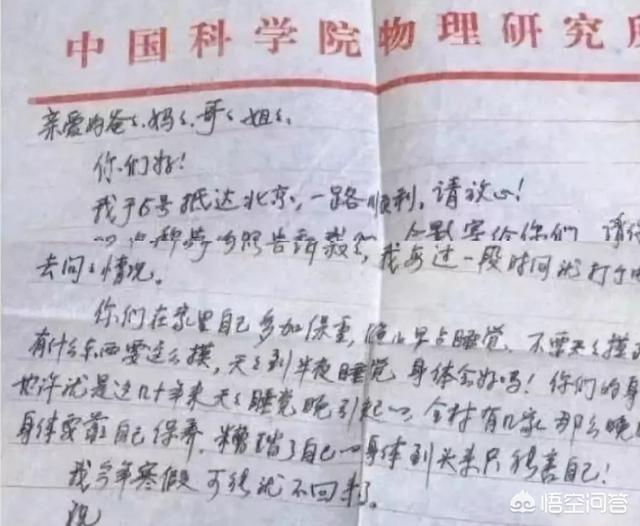 中国科学院物理研究所
亲爱的爸々、妈々、哥々、姐々、
你们好!
我于6号抵达北京,一路顺利,请放心!
寄给你们,请
去问々情况。我每过一段时间
你们在家里自己多加保重,早点睡觉,不要天々摸
有什么东西要这么摸,天々到半夜睡觉,身体会好吗!你们的身
也许就是这几十年来天々睡觉晚引起的,全村有几家那么晚
身体要靠自己保养,糟蹋了自己的身体到头来只能害自己!
我今年寒假可能就不回来了。
祝
悟空问答